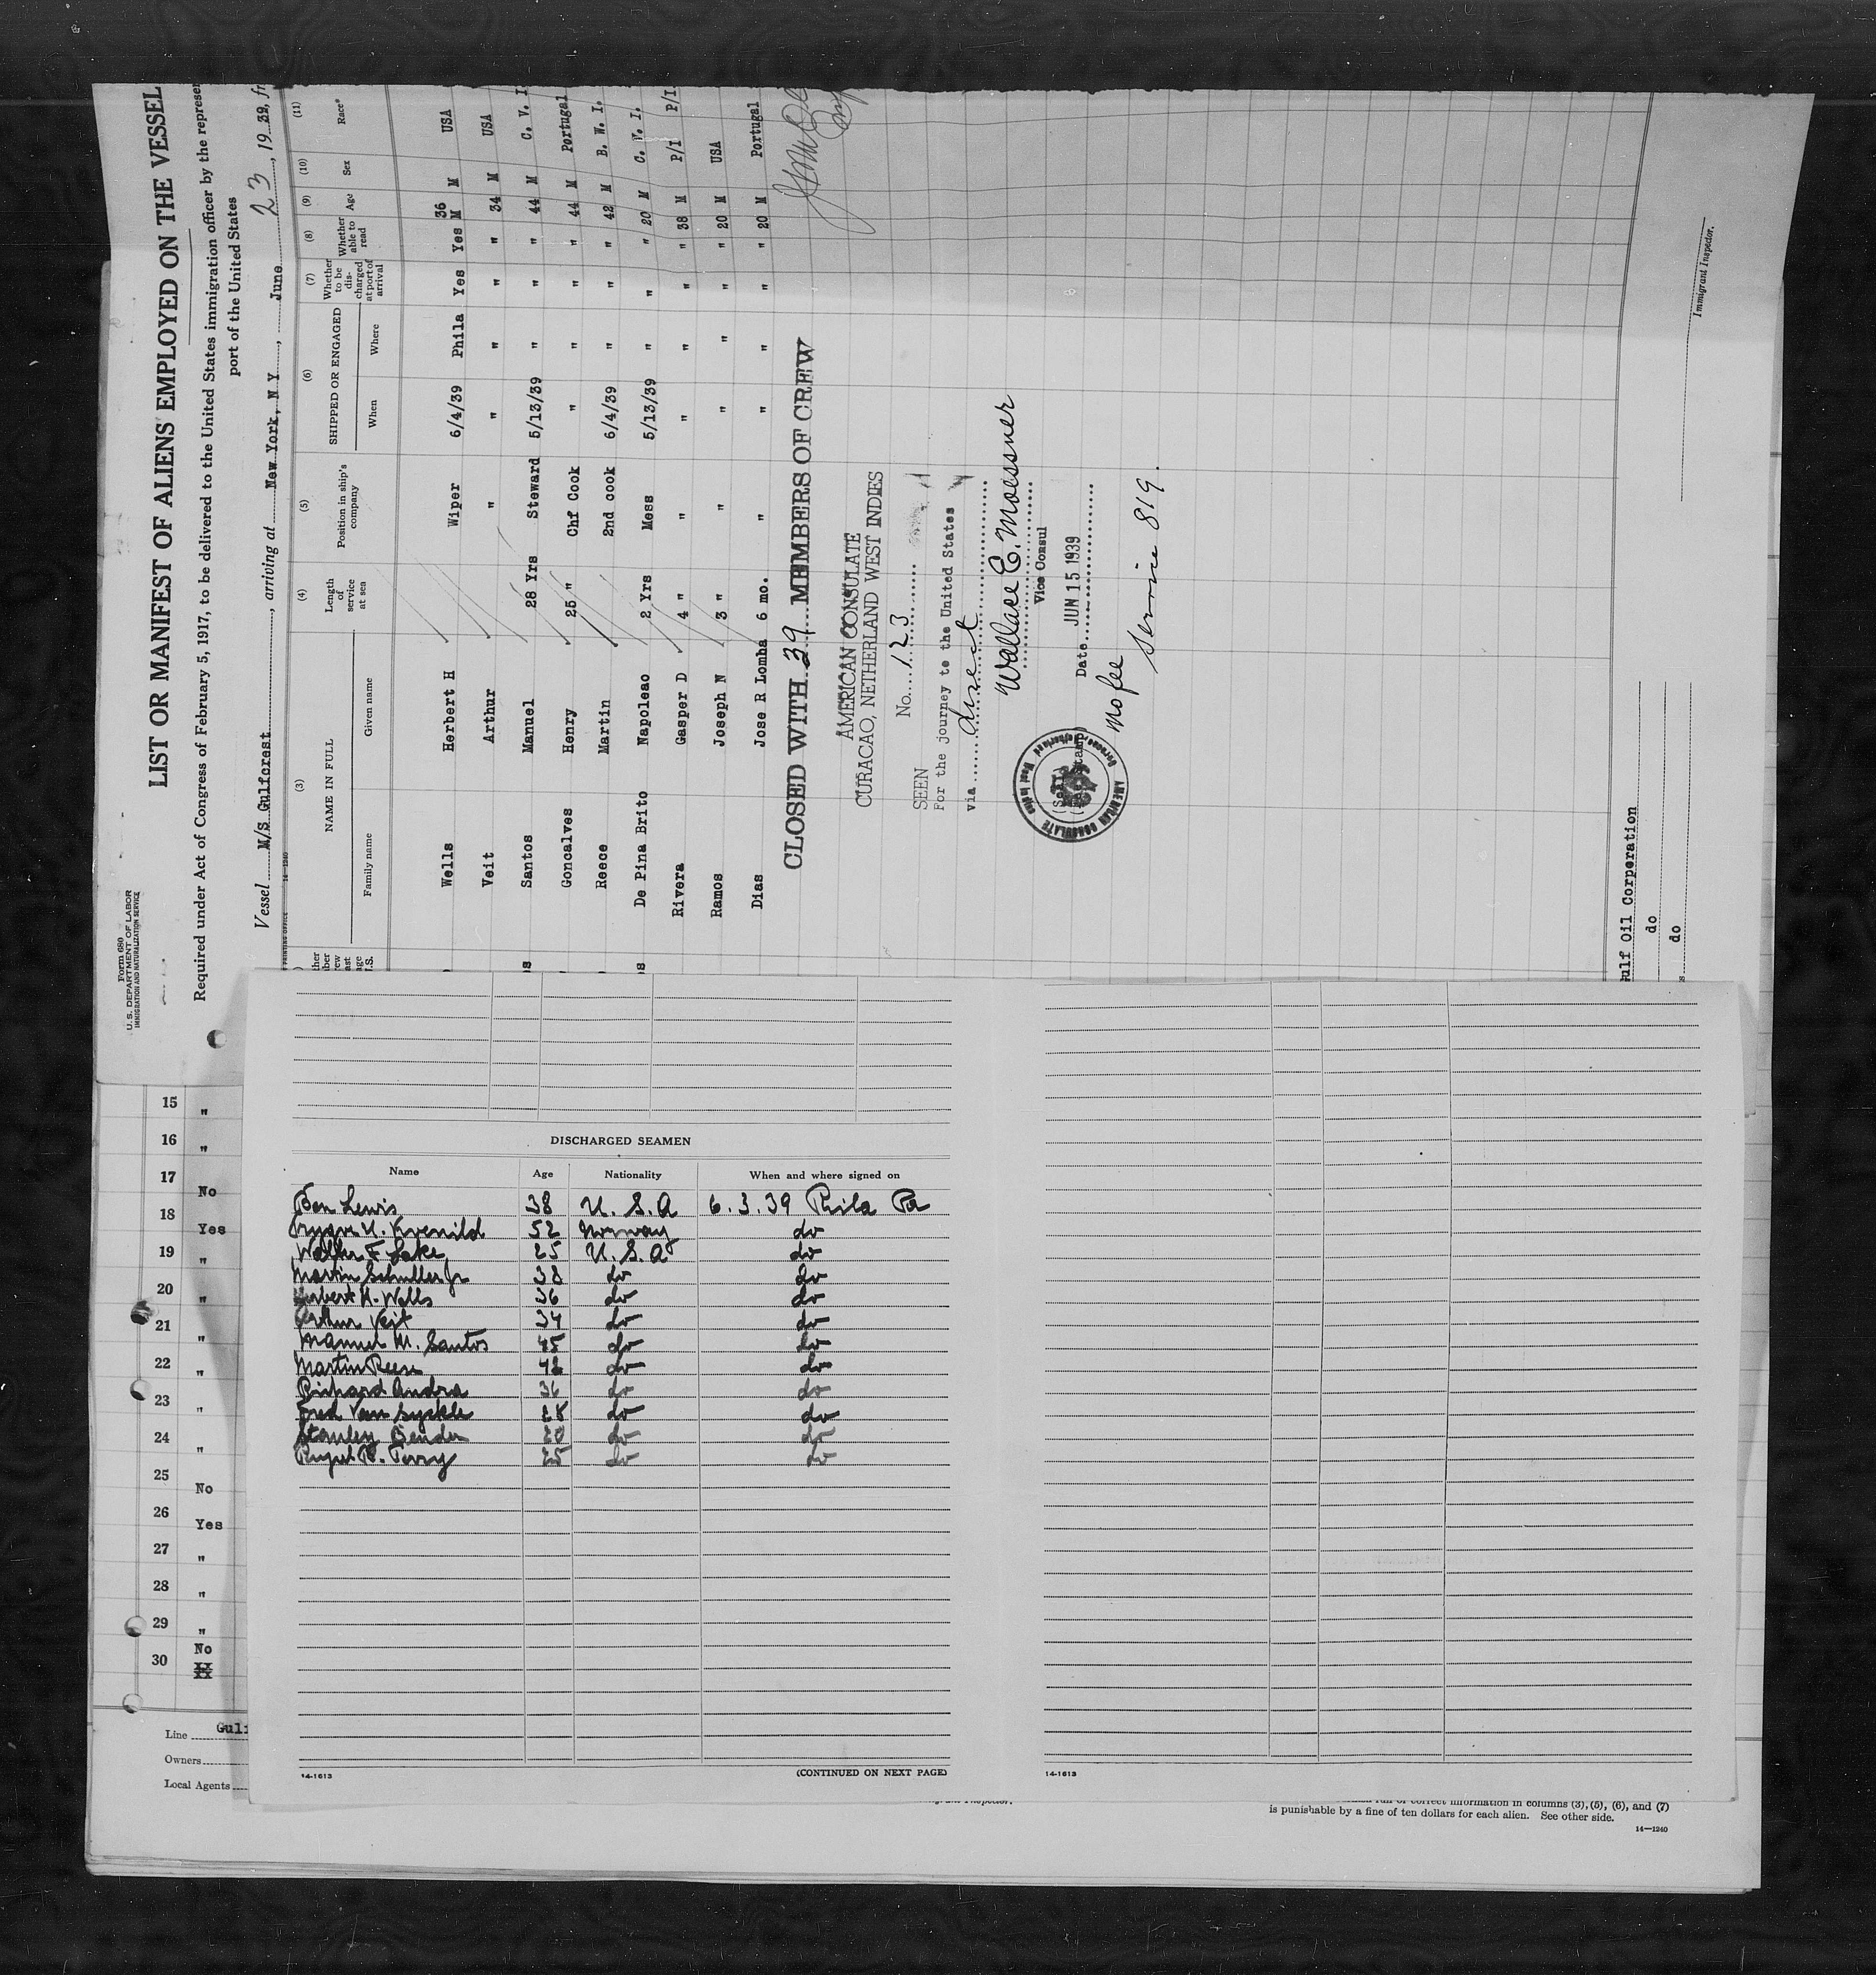 Form 680
U. S. DEPARTMENT OF LABOR
IMMIGRATION AND NATURALIZATION SERVICE
LIST OR MANIFEST OF ALIENS EMPLOYED ON THE VESSEL
Required under Act of Congress of February 5, 1917, to be delivered to the United States immigration officer by the represen
port of the United States
Vessel M/S Gulforest, arriving at New York, N Y, June 23, 1939, fr
14-1240
(3) (4) (5) (6) (7) (8) (9) (10) (11)
NAME IN FULL
Family name Given name
Length of service at sea
Position in ship's company
SHIPPED OR ENGAGED
When Where
Whether to be discharged at port of arrival
Whether able to read
Age
Sex
Race*
Wells Herbert H Wiper 6/4/39 Phila Yes Yes 36 M M USA
Veit Arthur " " " " " 34 M USA
Santos Manuel 28 Yrs Steward 5/13/39 " " " 44 M C. V. I
Goncalves Henry 25 " Chf Cook " " " " 44 M Portugal
Reece Martin 2nd cook 6/4/39 " " " 42 M B. W. I.
De Pina Brito Napoleao 2 Yrs Mess 5/13/39 " " " 20 M C. V. I.
Rivera Gasper D 4 " " " " " " 38 M P/I P/I
Ramos Joseph N 3 " " " " " " 20 M USA
Dias Jose R Lomba 6 mo. " " " " " 20 M Portugal
CLOSED WITH 39 MEMBERS OF CREW
AMERICAN CONSULATE
CURACAO, NETHERLAND WEST INDIES
No. 123
SEEN
For the journey to the United States
via direct
Wallace E. Moessner
Vice Consul
Date JUN 15 1939
AMERICAN CONSULATE
No fee
Service 819.
Immigrant Inspector.
ulf Oil Corporation
do
do
15 "
16 "
17 No
18 Yes
19 "
20 "
21 "
22 "
23 "
24 "
25 No
26 Yes
27 "
28 "
29 "
30 No
Line Gulf
Owners
Local Agents
DISCHARGED SEAMEN
Name Age Nationality When and where signed on
Ben Lewis 38 U. S. A 6.3.39 Phila Pa
52 Norway do
Walter F Lake 25 U. S. A do
Martin Schuller Jr 38 do do
Herbert H. Wells 36 do do
Arthur Veit 34 do do
Manuel M. Santos do do
Martin Reese 42 do do
Richard Andra 36 do do
Fred Van Syckle 25 do do
Stanley Bender 20 do do
Terry do do
14-1613
(CONTINUED ON NEXT PAGE)
14-1613
correct information in columns (3), (5), (6), and (7)
is punishable by a fine of ten dollars for each alien. See other side.
14—1240